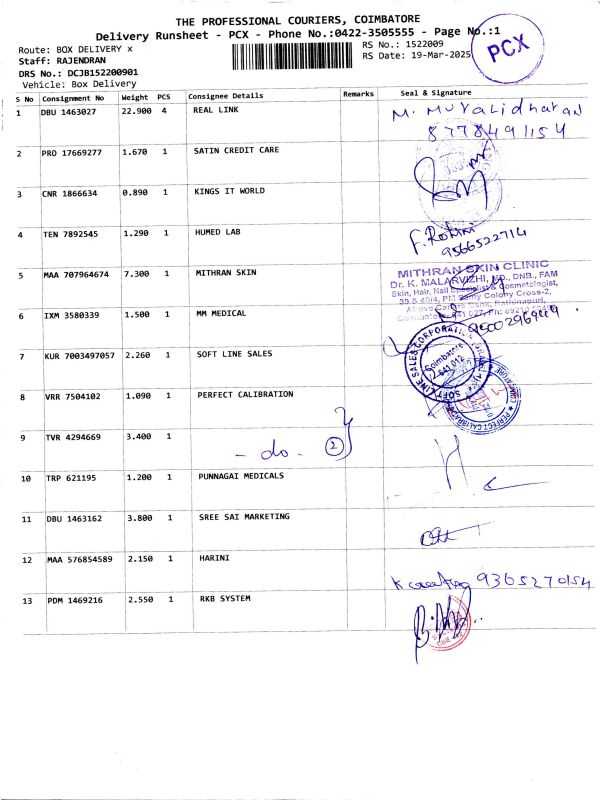 THE PROFESSIONAL COURIERS, COIMBATORE
Delivery Runsheet - PCX - Phone No.:0422-3505555 - Page No.:1
Route: BOX DELIVERY x
RS No.: 1522009
Staff: RAJENDRAN
RS Date: 19-Mar-2025
PCX
DRS No.: DCJB152200901
Vehicle: Box Delivery
S No Consignment No Weight PCS Consignee Details Remarks Seal & Signature
1 DBU 1463027 22.900 4 REAL LINK M. Muralidharan
8778491154
2 PRO 17669277 1.670 1 SATIN CREDIT CARE
3 CNR 1866634 0.890 1 KINGS IT WORLD
4 TEN 7892545 1.290 1 HUMED LAB F. Rohini
9566522714
5 MAA 707964674 7.300 1 MITHRAN SKIN
MITHRAN SKIN CLINIC
Dr. K. MALARVIZHI, MD., DNB., FAM
Skin, Hair, Nail Specialist & Cosmetologist,
39 & 40/4, PM Samy Colony Cross-2,
Above Canara Bank, Rathinapuri,
Coimbatore - 641 027, Ph:
6 IXM 3580339 1.500 1 MM MEDICAL
7 KUR 7003497057 2.260 1 SOFT LINE SALES
SOFT LINE SALES CORPORATION
Coimbatore
641 012
8 VRR 7504102 1.090 1 PERFECT CALIBRATION
PERFECT CALIBRATION
9 TVR 4294669 3.400 1 - do. 2
10 TRP 621195 1.200 1 PUNNAGAI MEDICALS
11 DBU 1463162 3.800 1 SREE SAI MARKETING
12 MAA 576854589 2.150 1 HARINI
9365270154
13 PDM 1469216 2.550 1 RKB SYSTEM